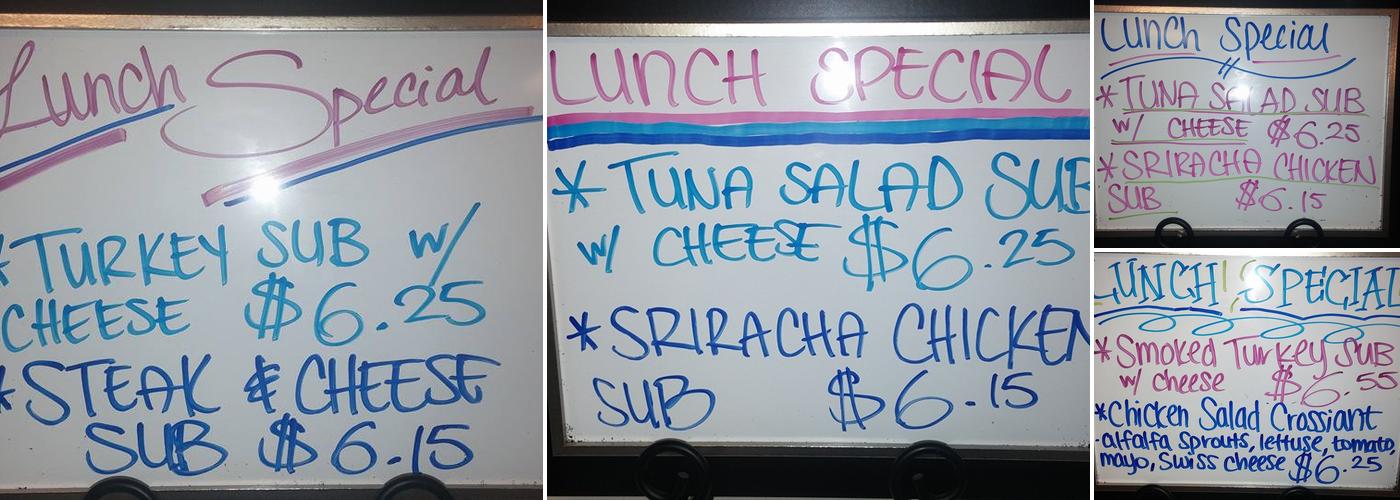 Lunch Special
*TURKEY SUB w/
CHEESE $6.25
*STEAK & CHEESE
SUB $6.15
LUNCH SPECIAL
* TUNA SALAD SUB
w/ CHEESE $6.25
* SRIRACHA CHICKEN
SUB $6.15
Lunch Special
* TUNA SALAD SUB
w/ CHEESE $6.25
* SRIRACHA CHICKEN
SUB $6.15
LUNCH! SPECIAL
* Smoked Turkey SUB
w/ cheese $6.55
*Chicken Salad Crossiant
-alfalfa sprouts, lettuse, tomato,
mayo, Swiss cheese $6.25